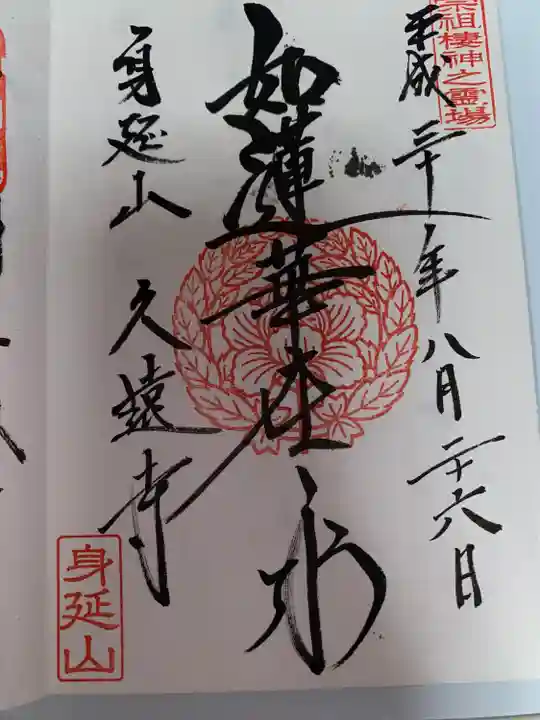 宗祖棲神之霊場
平成三十年八月二十六日
如蓮華在水
身延山 久遠寺
身延山